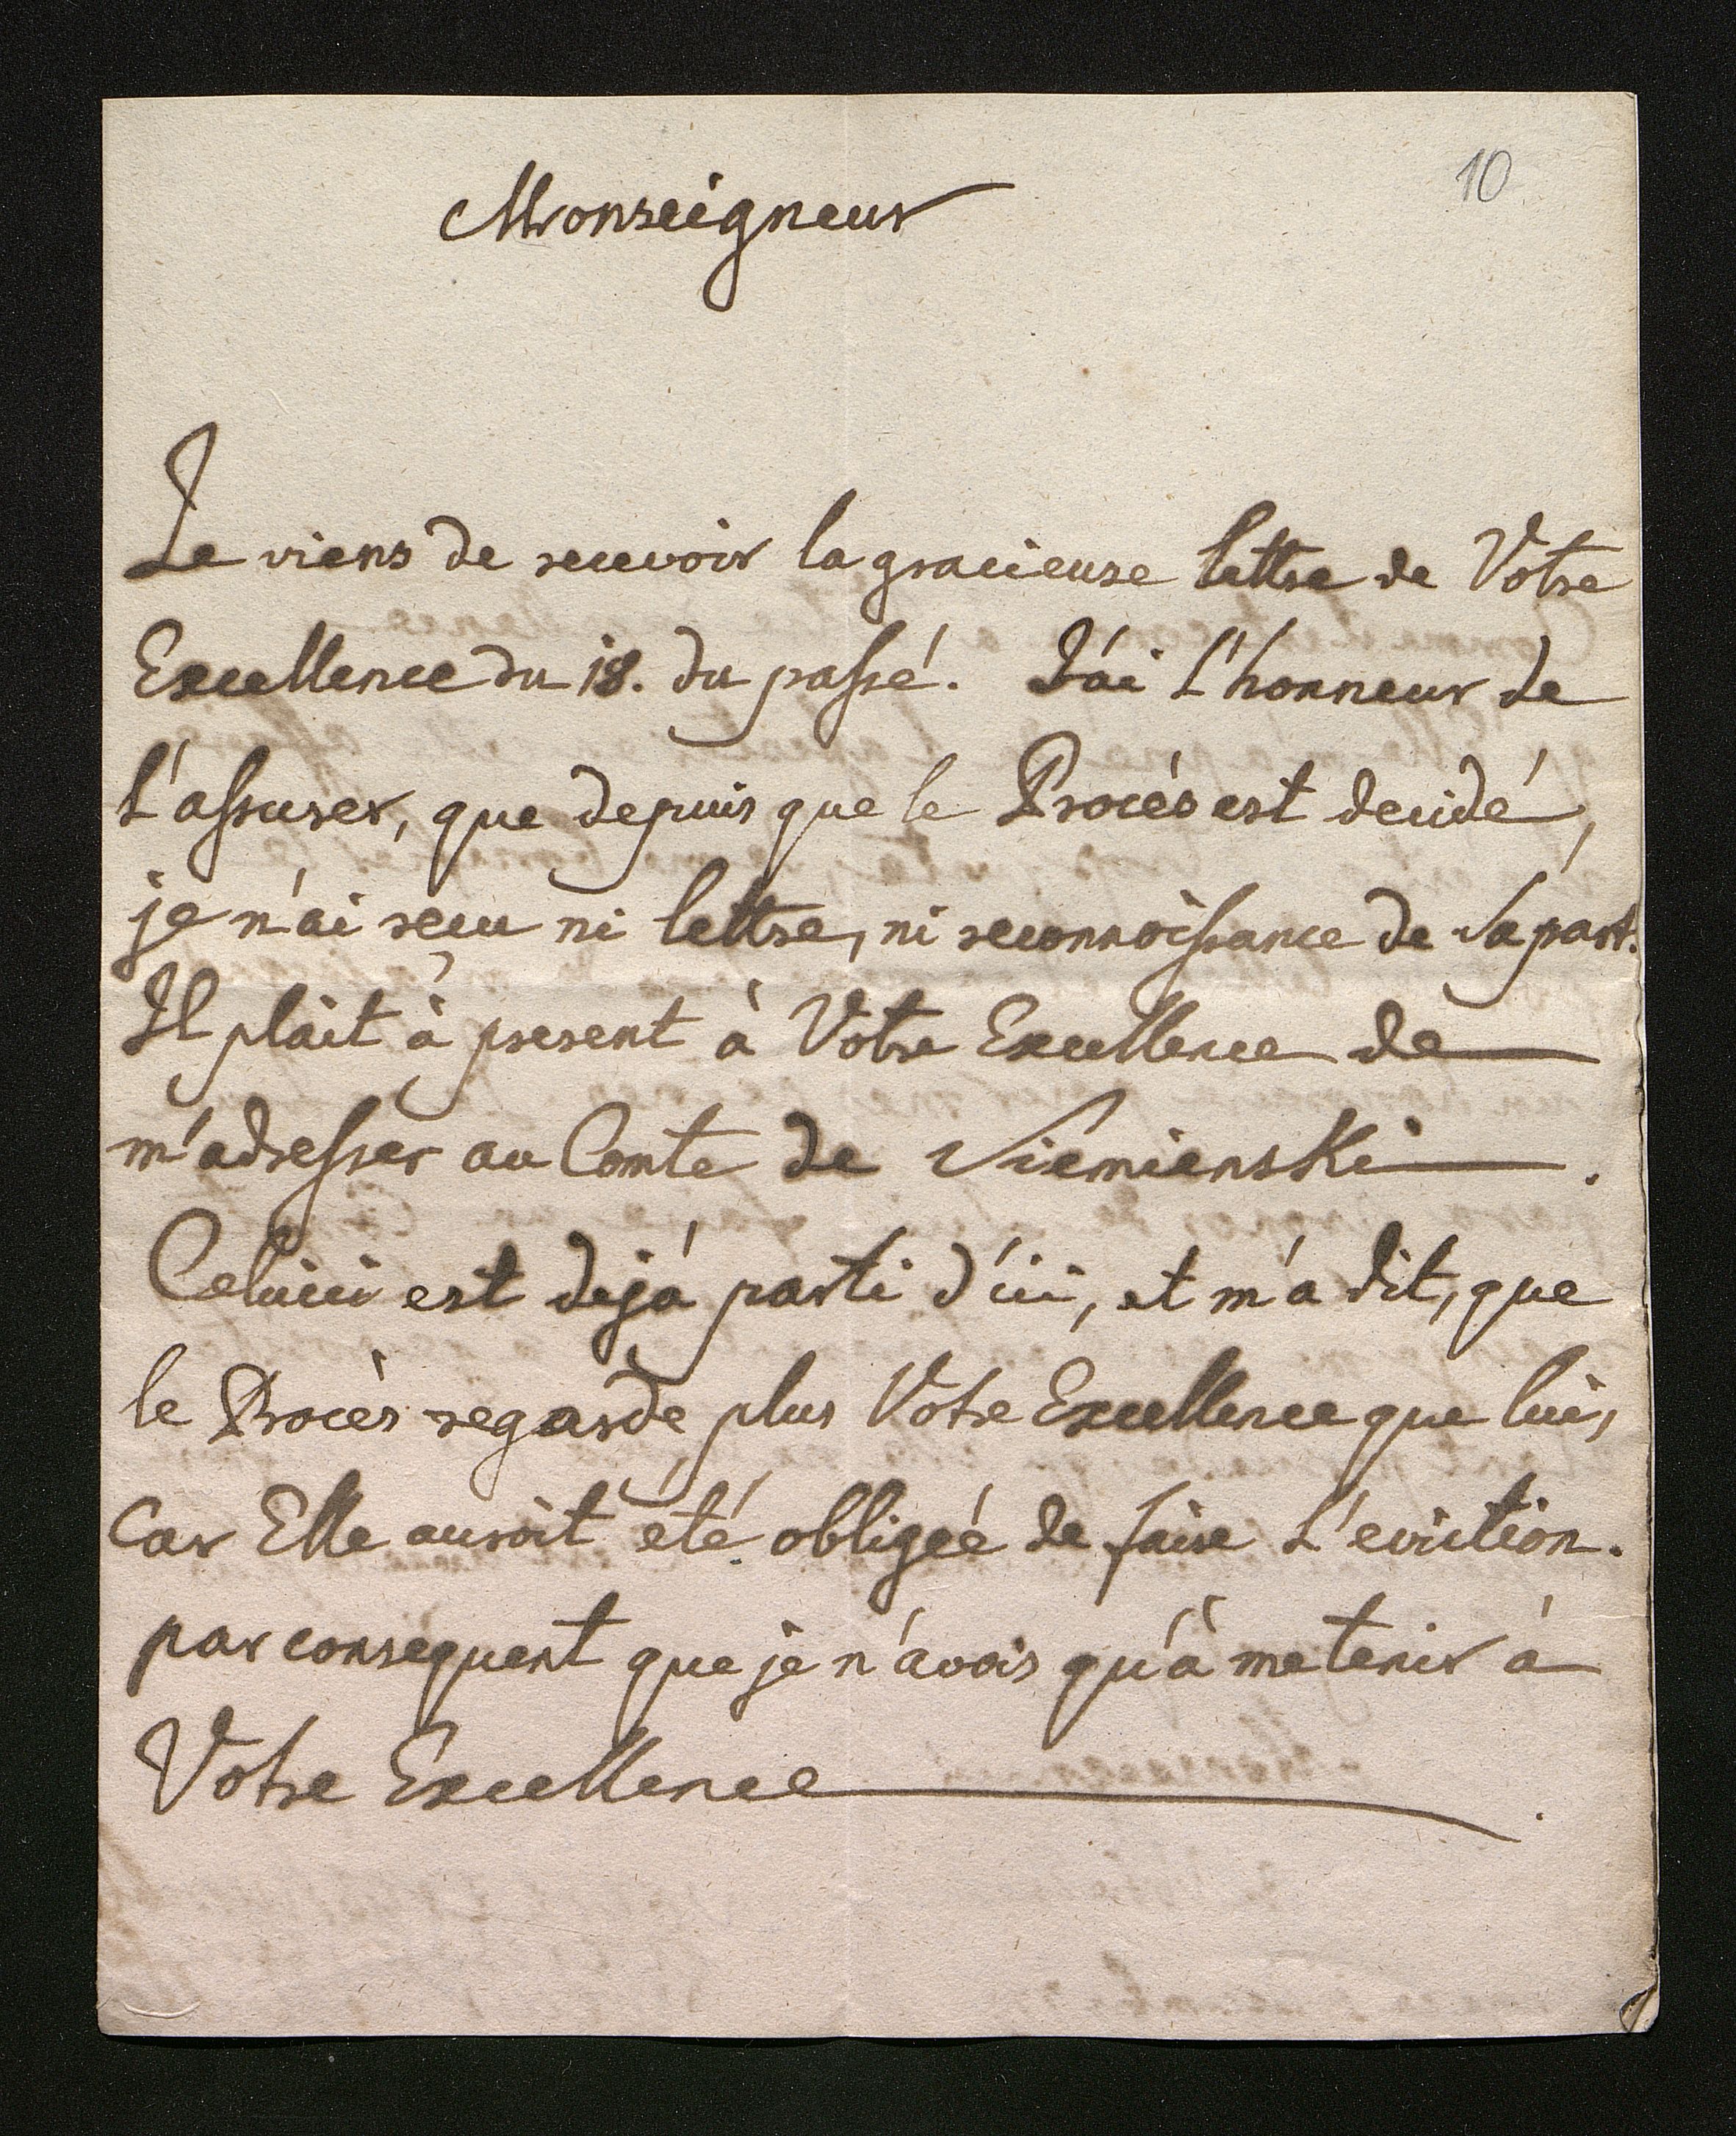 10
Monseigneur
Je viens de recevoir la gracieuse lettre de Votre
Excellence du 18. du passé. J'ai l'honneur de
l'assurer, que depuis que le Procès est decidé,
je n'ai reçu ni lettre, ni reconnoissance de Sa part.
Il plait à present à Votre Excellence de
m'adresser au Comte de Siemienski.
Celuici est dejà parti d'ici, et m'a dit, que
le Procès regarde plus Votre Excellence que lui,
car Elle auroit été obligée de faire l'eviction.
par consequent que je n'avois qu'à me tenir à
Votre Excellence.